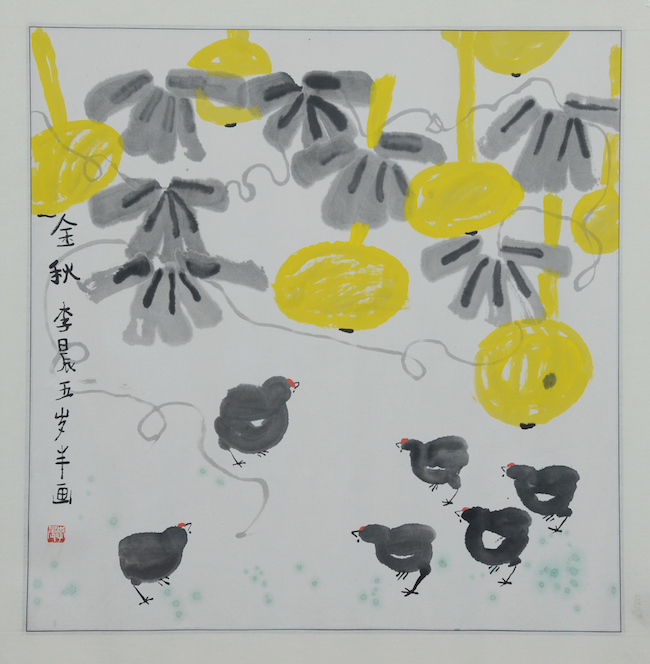 金秋 李晨五岁半画